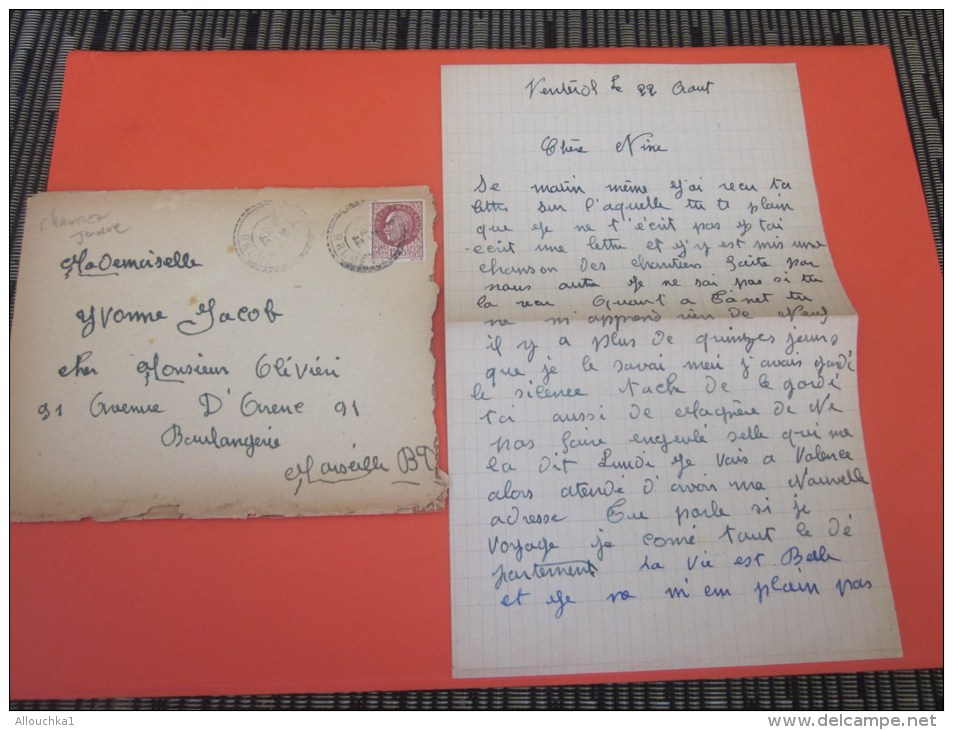 Chantier
Jeune
DROME
DROME
MaDemoiselle
Yvonne Jacob
cher Monsieur Olévieri
91 Avenue D'Arenc 91
Boulangerie
Marseille BD
Ventérol Le 22 Aout
Chère Nine
Se matin même J'ai recu ta
lettre sur l'aquelle tu te plain
que je ne t'écrit pas Je tai
ecrit une lettre et j'y est mis une
chanson des chantiers faite par
nous autre Je ne sai pas si tu
la recu Quant a Ginet tu
ne m'apprend rien De Neuf
il y a plus de quinzes jours
que je le savai mei j'avais gardé
le silence tache de le gardé
toi aussi De manière de Ne
pas faire engeulé selle qui me
la Dit Lundi Je Vais a Valence
alors atendé D'avoir ma Nouvelle
adresse Tu parle si je
voyage je corné taut le Dé
partement La Vie est Belle
et Je ne m'em plain pas
Allouchka1
http://www.delcampe.net